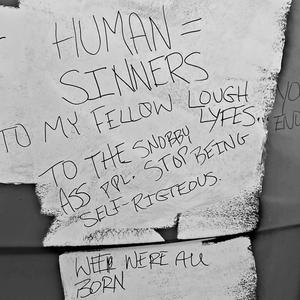 HUMAN =
SINNERS
TO MY FELLOW LOUGH
LYFES.
TO THE SNOBBY
ASS PPL. STOP BEING
SELF-RIGTEOUS.
WE WERE All
BORN
YO
END